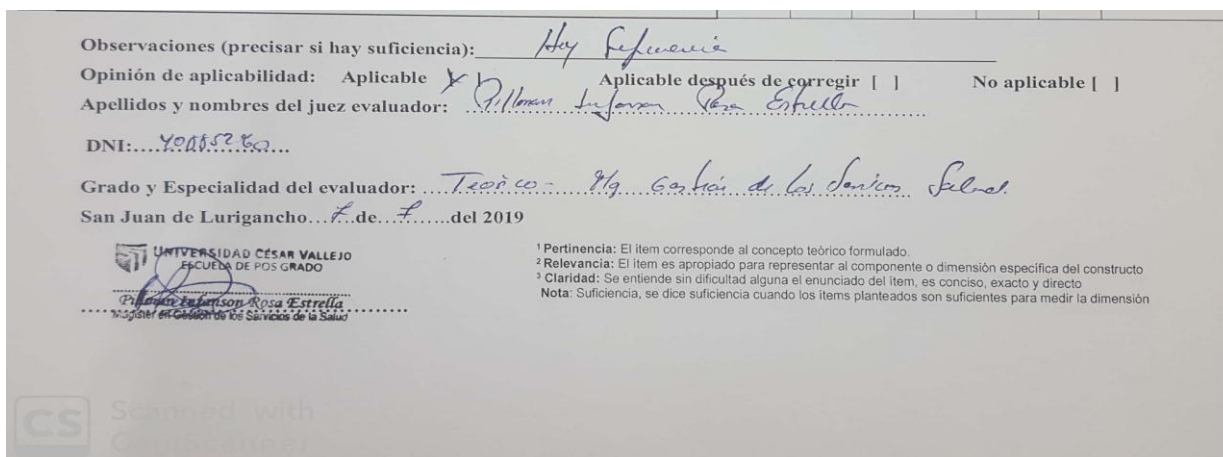 Observaciones (precisar si hay suficiencia): Hay Suficiencia
Opinión de aplicabilidad: Aplicable [X] Aplicable después de corregir [ ] No aplicable [ ]
Apellidos y nombres del juez evaluador: Rosa Estrella
DNI:....
Grado y Especialidad del evaluador: Teórico - Mg Gestión de los Servicios Salud.
San Juan de Lurigancho...7..de...7......del 2019
UNIVERSIDAD CÉSAR VALLEJO
ESCUELA DE POS GRADO
Rosa Estrella
Magister en Gestión de los Servicios de la Salud
¹ Pertinencia: El item corresponde al concepto teórico formulado.
² Relevancia: El item es apropiado para representar al componente o dimensión específica del constructo
³ Claridad: Se entiende sin dificultad alguna el enunciado del item, es conciso, exacto y directo
Nota: Suficiencia, se dice suficiencia cuando los items planteados son suficientes para medir la dimensión
CS Scanned with
CamScanner